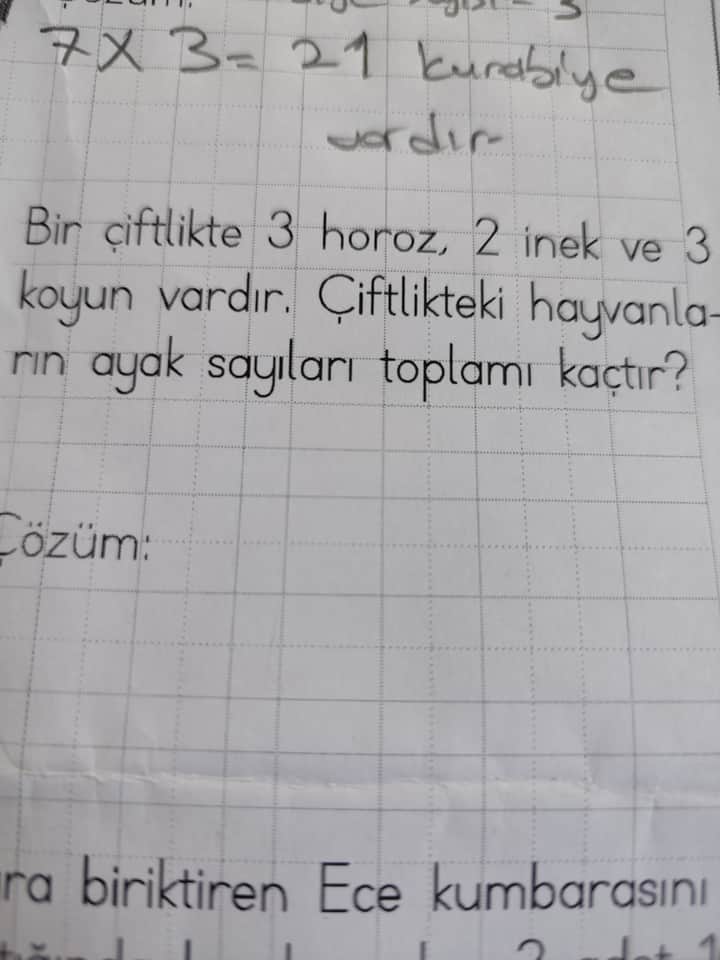 7 X 3 = 21 kurabiye
vardır
Bir çiftlikte 3 horoz, 2 inek ve 3
koyun vardır. Çiftlikteki hayvanla-
rın ayak sayıları toplamı kaçtır?
Çözüm:
ra biriktiren Ece kumbarasını